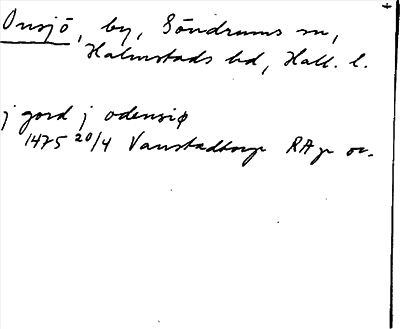 Onsjö, by, Söndrums sn,
Halmstads hd, Hall. l.
j gord j odensiø
1475 20/4 Vanstadtorp RAp or.